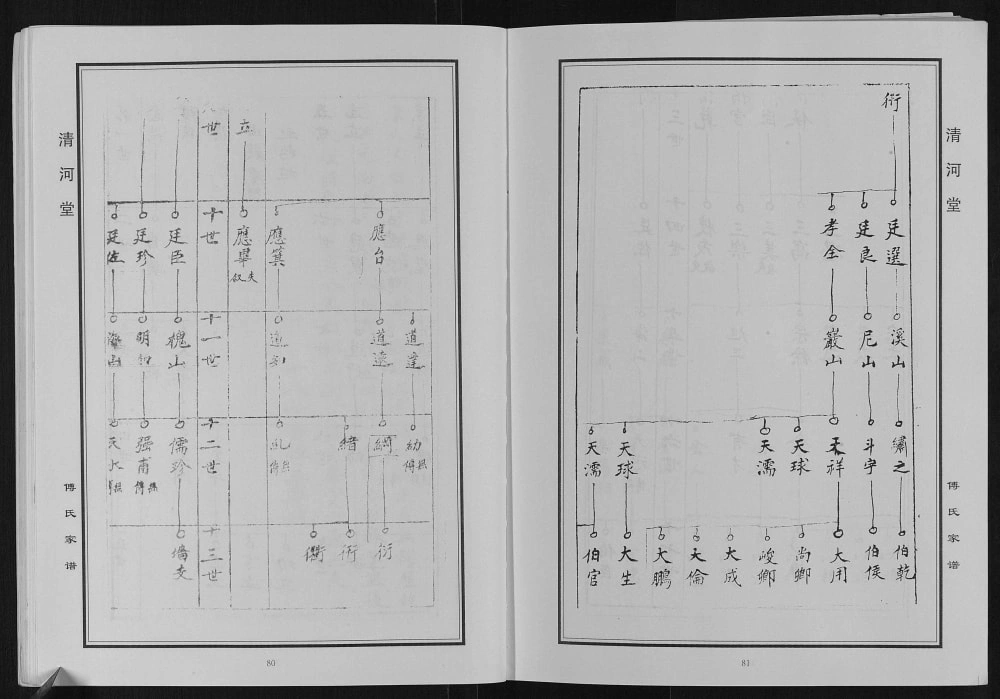 清河堂
傅氏家谱
衍
廷選
廷良
孝全
溪山
尼山
巖山
繡之
斗宇
天祥
天球
天濡
天球
天濡
伯乾
伯侯
大用
尚卿
峻卿
大成
大倫
大鵬
大生
伯官
81
清河堂
傅氏家谱
立
世
十世
十一世
十二世
十三世
應台
應箕
應舉
廷臣
廷珍
廷佐
道達
道遠
槐山
明和
幼
緒
儒珍
強甫
天水
衍
衎
衢
80